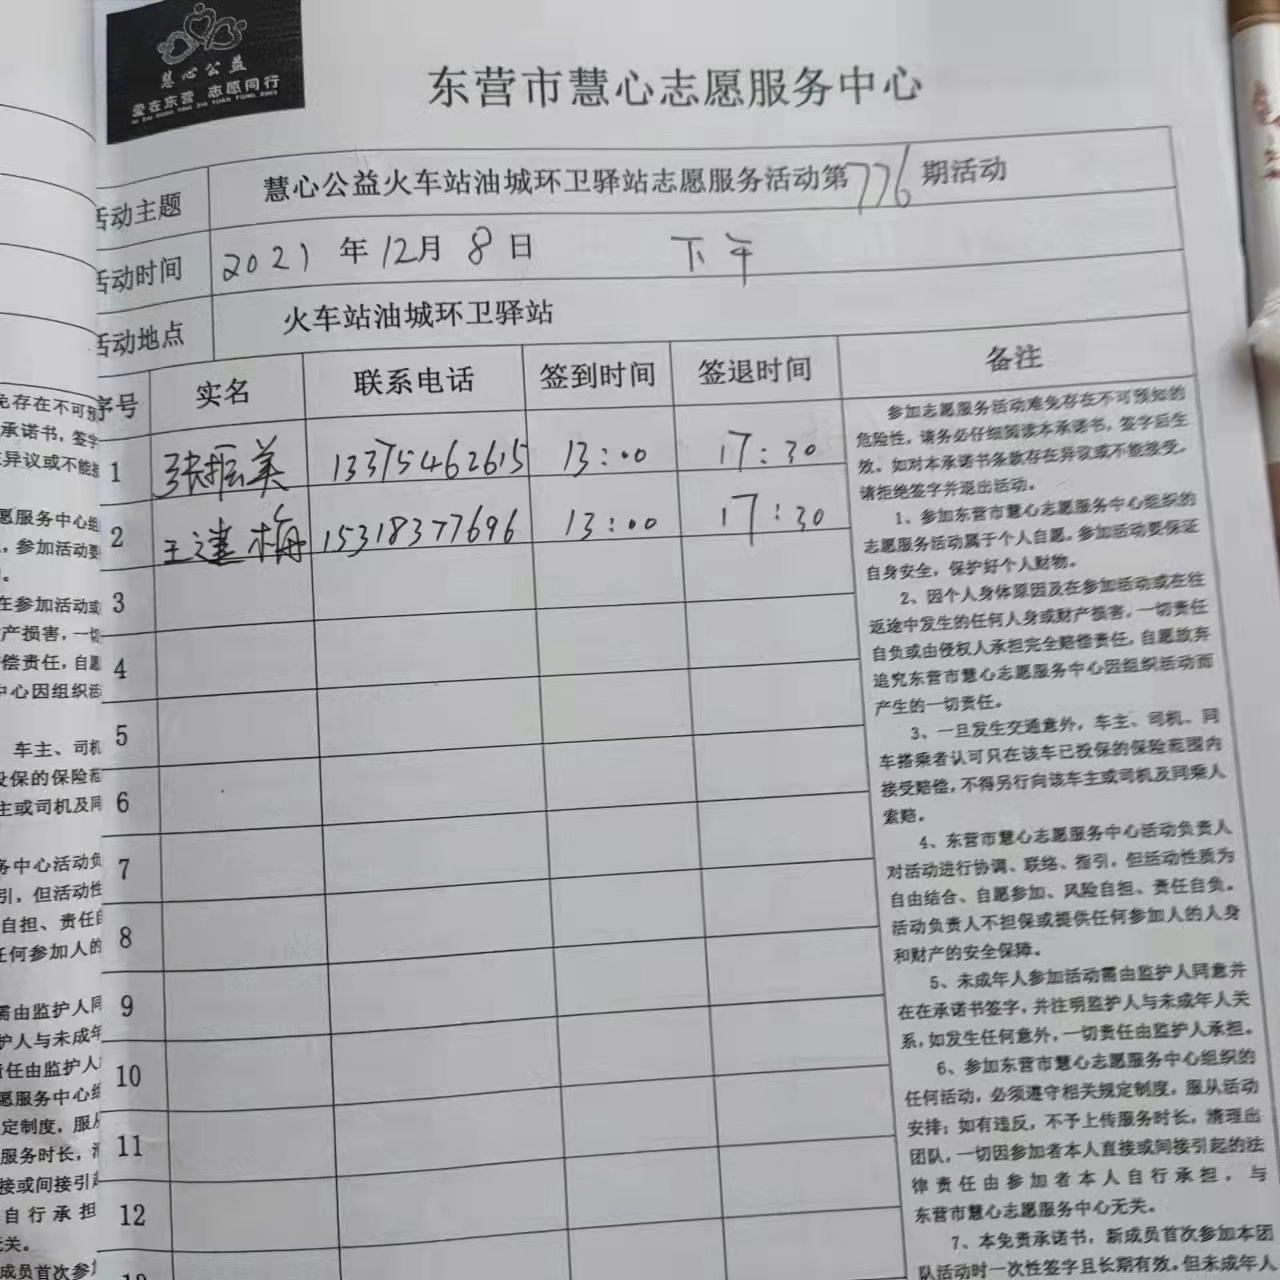 慧心公益
爱在东营 志愿同行
东营市慧心志愿服务中心
活动主题 慧心公益火车站油城环卫驿站志愿服务活动第776期活动
活动时间 2021年12月8日 下午
活动地点 火车站油城环卫驿站
序号 实名 联系电话 签到时间 签退时间 备注
1 张振美 13375462615 13:00 17:30
2 王建梅 15318377696 13:00 17:30
3
4
5
6
7
8
9
10
11
12
13
参加志愿服务活动难免存在不可预知的
危险性，请务必仔细阅读本承诺书，签字后生
效。如对本承诺书条款存在异议或不能接受，
请拒绝签字并退出活动。
1、参加东营市慧心志愿服务中心组织的
志愿服务活动属于个人自愿。参加活动要保证
自身安全，保护好个人财物。
2、因个人身体原因及在参加活动或在往
返途中发生的任何人身或财产损害，一切责任
自负或由侵权人承担完全赔偿责任，自愿放弃
追究东营市慧心志愿服务中心因组织活动而
产生的一切责任。
3、一旦发生交通意外，车主、司机、同
车搭乘者认可只在该车已投保的保险范围内
接受赔偿，不得另行向该车主或司机及同乘人
索赔。
4、东营市慧心志愿服务中心活动负责人
对活动进行协调、联络、指引，但活动性质为
自由结合、自愿参加、风险自担、责任自负。
活动负责人不担保或提供任何参加人的人身
和财产的安全保障。
5、未成年人参加活动需由监护人同意并
在在承诺书签字，并注明监护人与未成年人关
系，如发生任何意外，一切责任由监护人承担。
6、参加东营市慧心志愿服务中心组织的
任何活动，必须遵守相关规定制度，服从活动
安排；如有违反，不予上传服务时长，清理出
团队，一切因参加者本人直接或间接引起的法
律责任由参加者本人自行承担，与
东营市慧心志愿服务中心无关。
7、本免责承诺书，新成员首次参加本团
队活动时一次性签字且长期有效。但未成年人